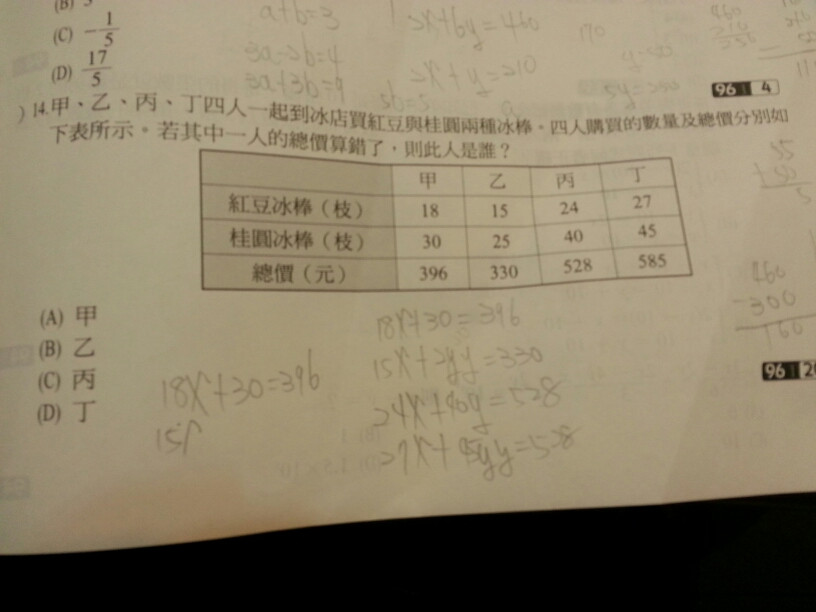 (B) 5
a+b=3
2x+6y=460
170
460
(C) -1/5
3a-2b=4
3a+3b=9
2x+y=210
(D) 17/5
96 4
)14.甲、乙、丙、丁四人一起到冰店買紅豆與桂圓兩種冰棒。四人購買的數量及總價分別如
下表所示。若其中一人的總價算錯了,則此人是誰?
甲 乙 丙 丁
紅豆冰棒(枝) 18 15 24 27
桂圓冰棒(枝) 30 25 40 45
總價(元) 396 330 528 585
(A) 甲
(B) 乙
(C) 丙
(D) 丁
460
-300
160
18x+30=396
15x+2yy=330
24x+40y=528
27x+45yy=528
18x+30=396
15x
96 20